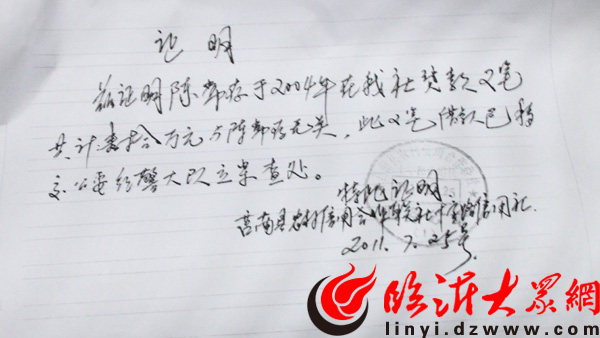 证明
兹证明陈常存于2004年在我社贷款又宝
共计叁拾万元与陈常存无关,此又宝借款已移
交公安经警大队立案查处。
特此证明
莒南县农村信用合作联社十字路信用社.
2011.7.25号
临沂大众網
linyi.dzwww.com